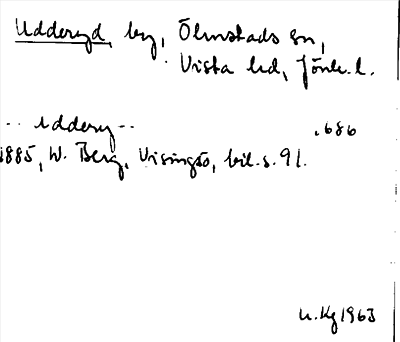 Uddaryd, by, Ölmstads sn,
Vista hd, Jönk. l.
.. uddery..
.686
1885, W. Berg, Visingsö, bil. s. 91.
U.Kg 1963